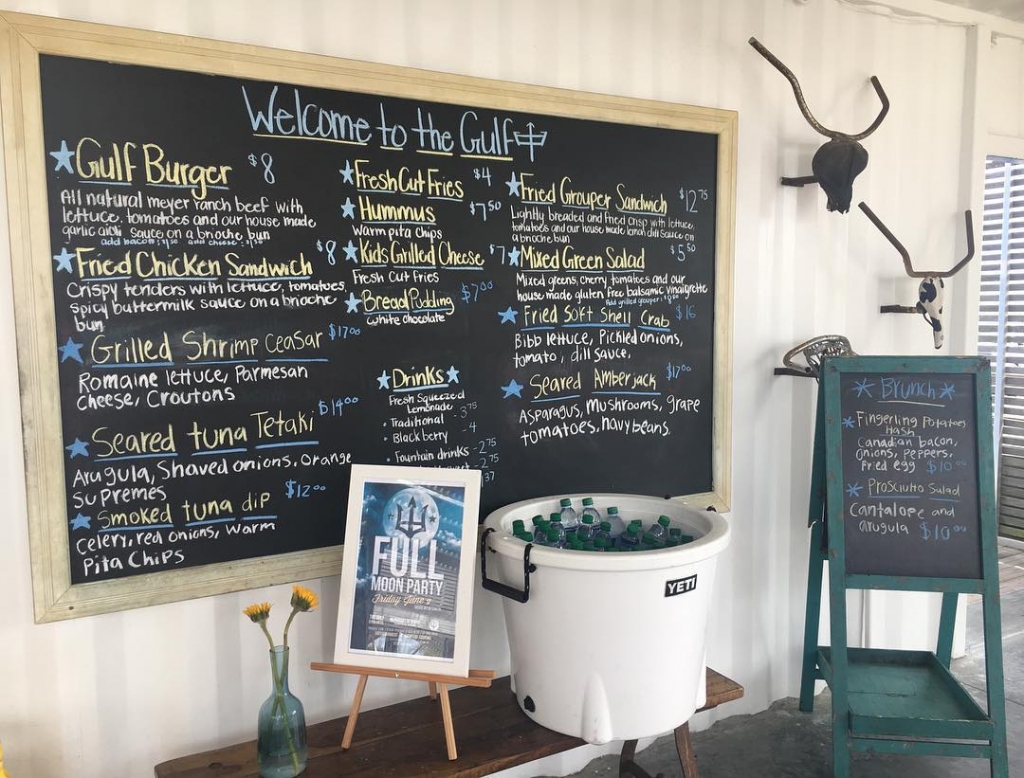 Welcome to the Gulf
Gulf Burger $8
All natural meyer ranch beef with
lettuce, tomatoes and our house made
garlic aioli sauce on a brioche bun
add bacon: $1.50 add cheese: $1.50
Fried Chicken Sandwich $8
Crispy tenders with lettuce, tomatoes,
spicy buttermilk sauce on a brioche
bun
Grilled Shrimp Ceasar $17.00
Romaine lettuce, Parmesan
Cheese, Croutons
Seared tuna Tetaki $14.00
Arugula, Shaved onions, Orange
Supremes
Smoked tuna dip $12.00
Celery, red onions, Warm
Pita Chips
Fresh Cut Fries $4
Hummus $7.50
Warm pita chips
Kids Grilled Cheese $7
Fresh Cut Fries
Bread Pudding $7.00
White chocolate
Drinks
Fresh Squeezed
Lemonade
Traditional - 3.75
Blackberry - 4
Fountain drinks - 2.75
- 2.75
Fried Grouper Sandwich $12.75
Lightly breaded and fried crisp with lettuce,
tomatoes and our house made lemon dill sauce on
a brioche bun
Mixed Green Salad $5.50
Mixed greens, cherry tomatoes and our
house made gluten free balsamic vinaigrette
Add grilled grouper
Fried Soft Shell Crab $16
Bibb lettuce, Pickled onions,
tomato, dill sauce.
Seared Amberjack $17.00
Asparagus, mushrooms, grape
tomatoes, navy beans.
FULL
MOON PARTY
Friday June 9
YETI
Brunch
Fingerling Potatoes
Hash
Canadian bacon,
Onions, Peppers,
Fried egg $10.00
Prosciutto Salad
Cantalope and
arugula $10.00